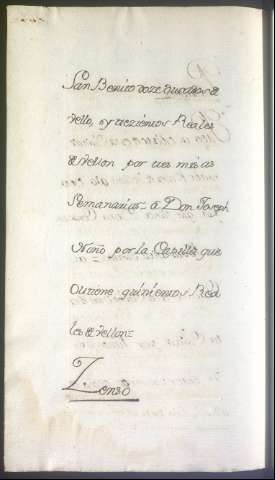 San Benito doze ducados de
vello, y trezientos Reales
de vellon por tres misas
Semanarias: a Don Joseph
Noño por la Capilla que
Obtiene quinientos Rea
les de vellon=
Zenso